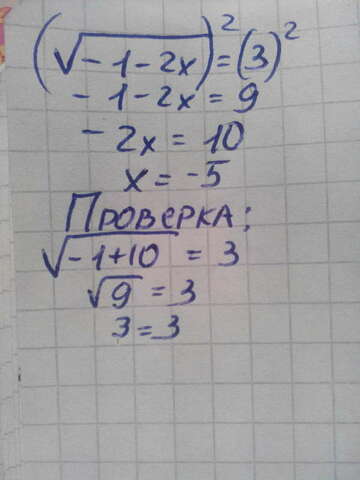 (√-1-2x)² = (3)²
-1-2x = 9
-2x = 10
x = -5
ПРОВЕРКА:
√-1+10 = 3
√9 = 3
3 = 3